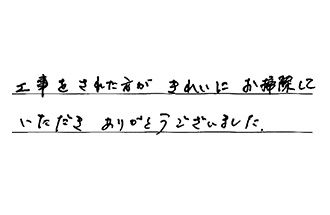 工事をされた方が きれいに お掃除して
いただき ありがとうございました.